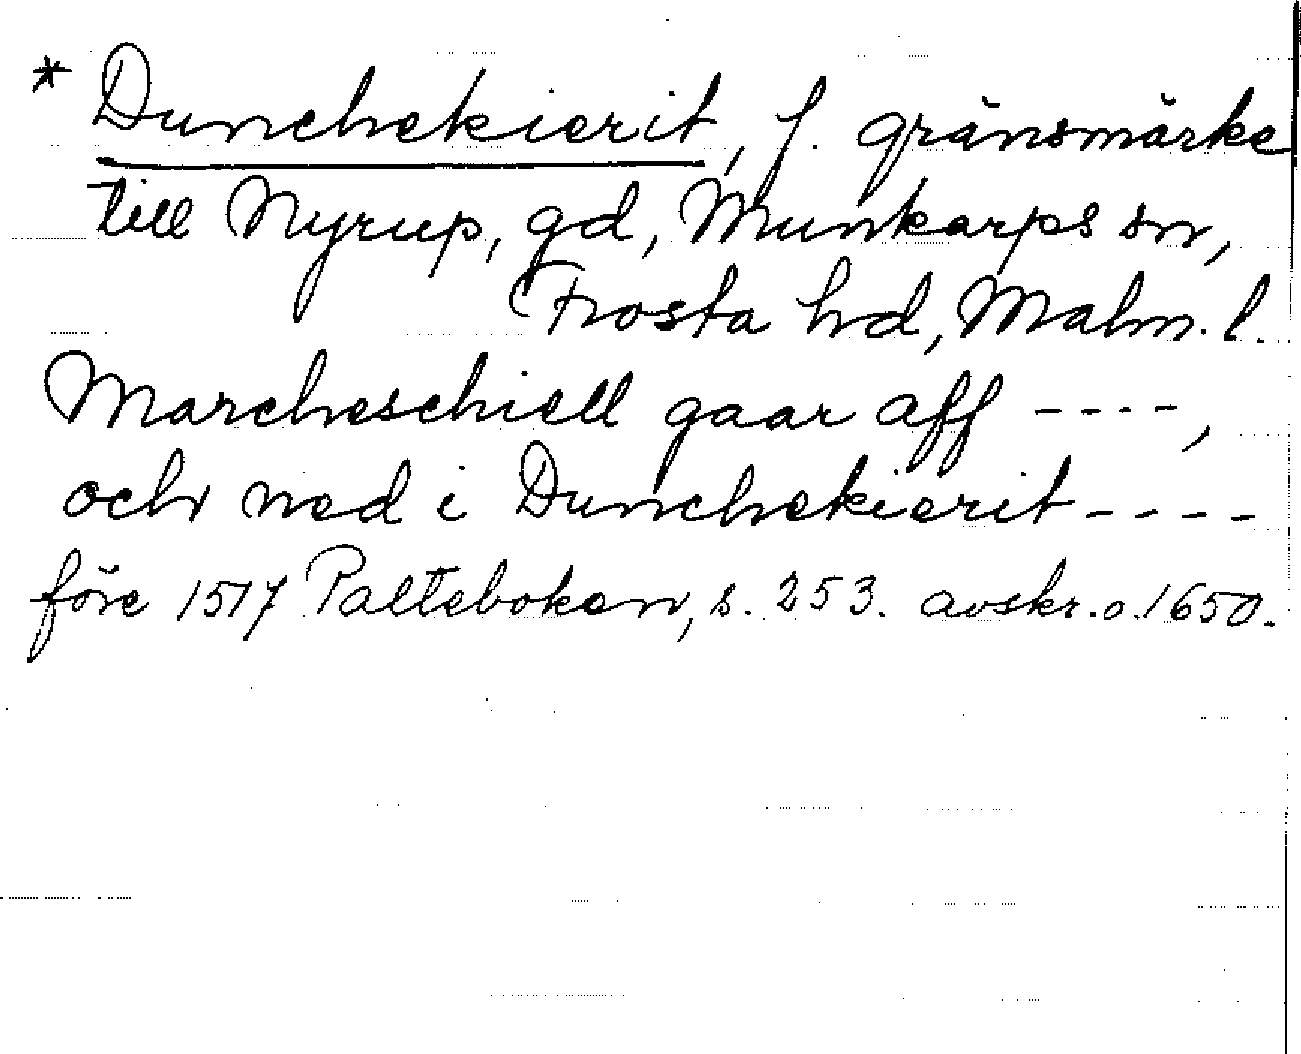 * Dunchekierit, f. gränsmärke
till Nyrup, gd, Munkarps sn,
Frosta hd, Malm. l.
Marcheschiell gaar aff ----,
och ned i Dunchekierit ----
före 1517 Palteboken, s. 253. avskr. o. 1650.